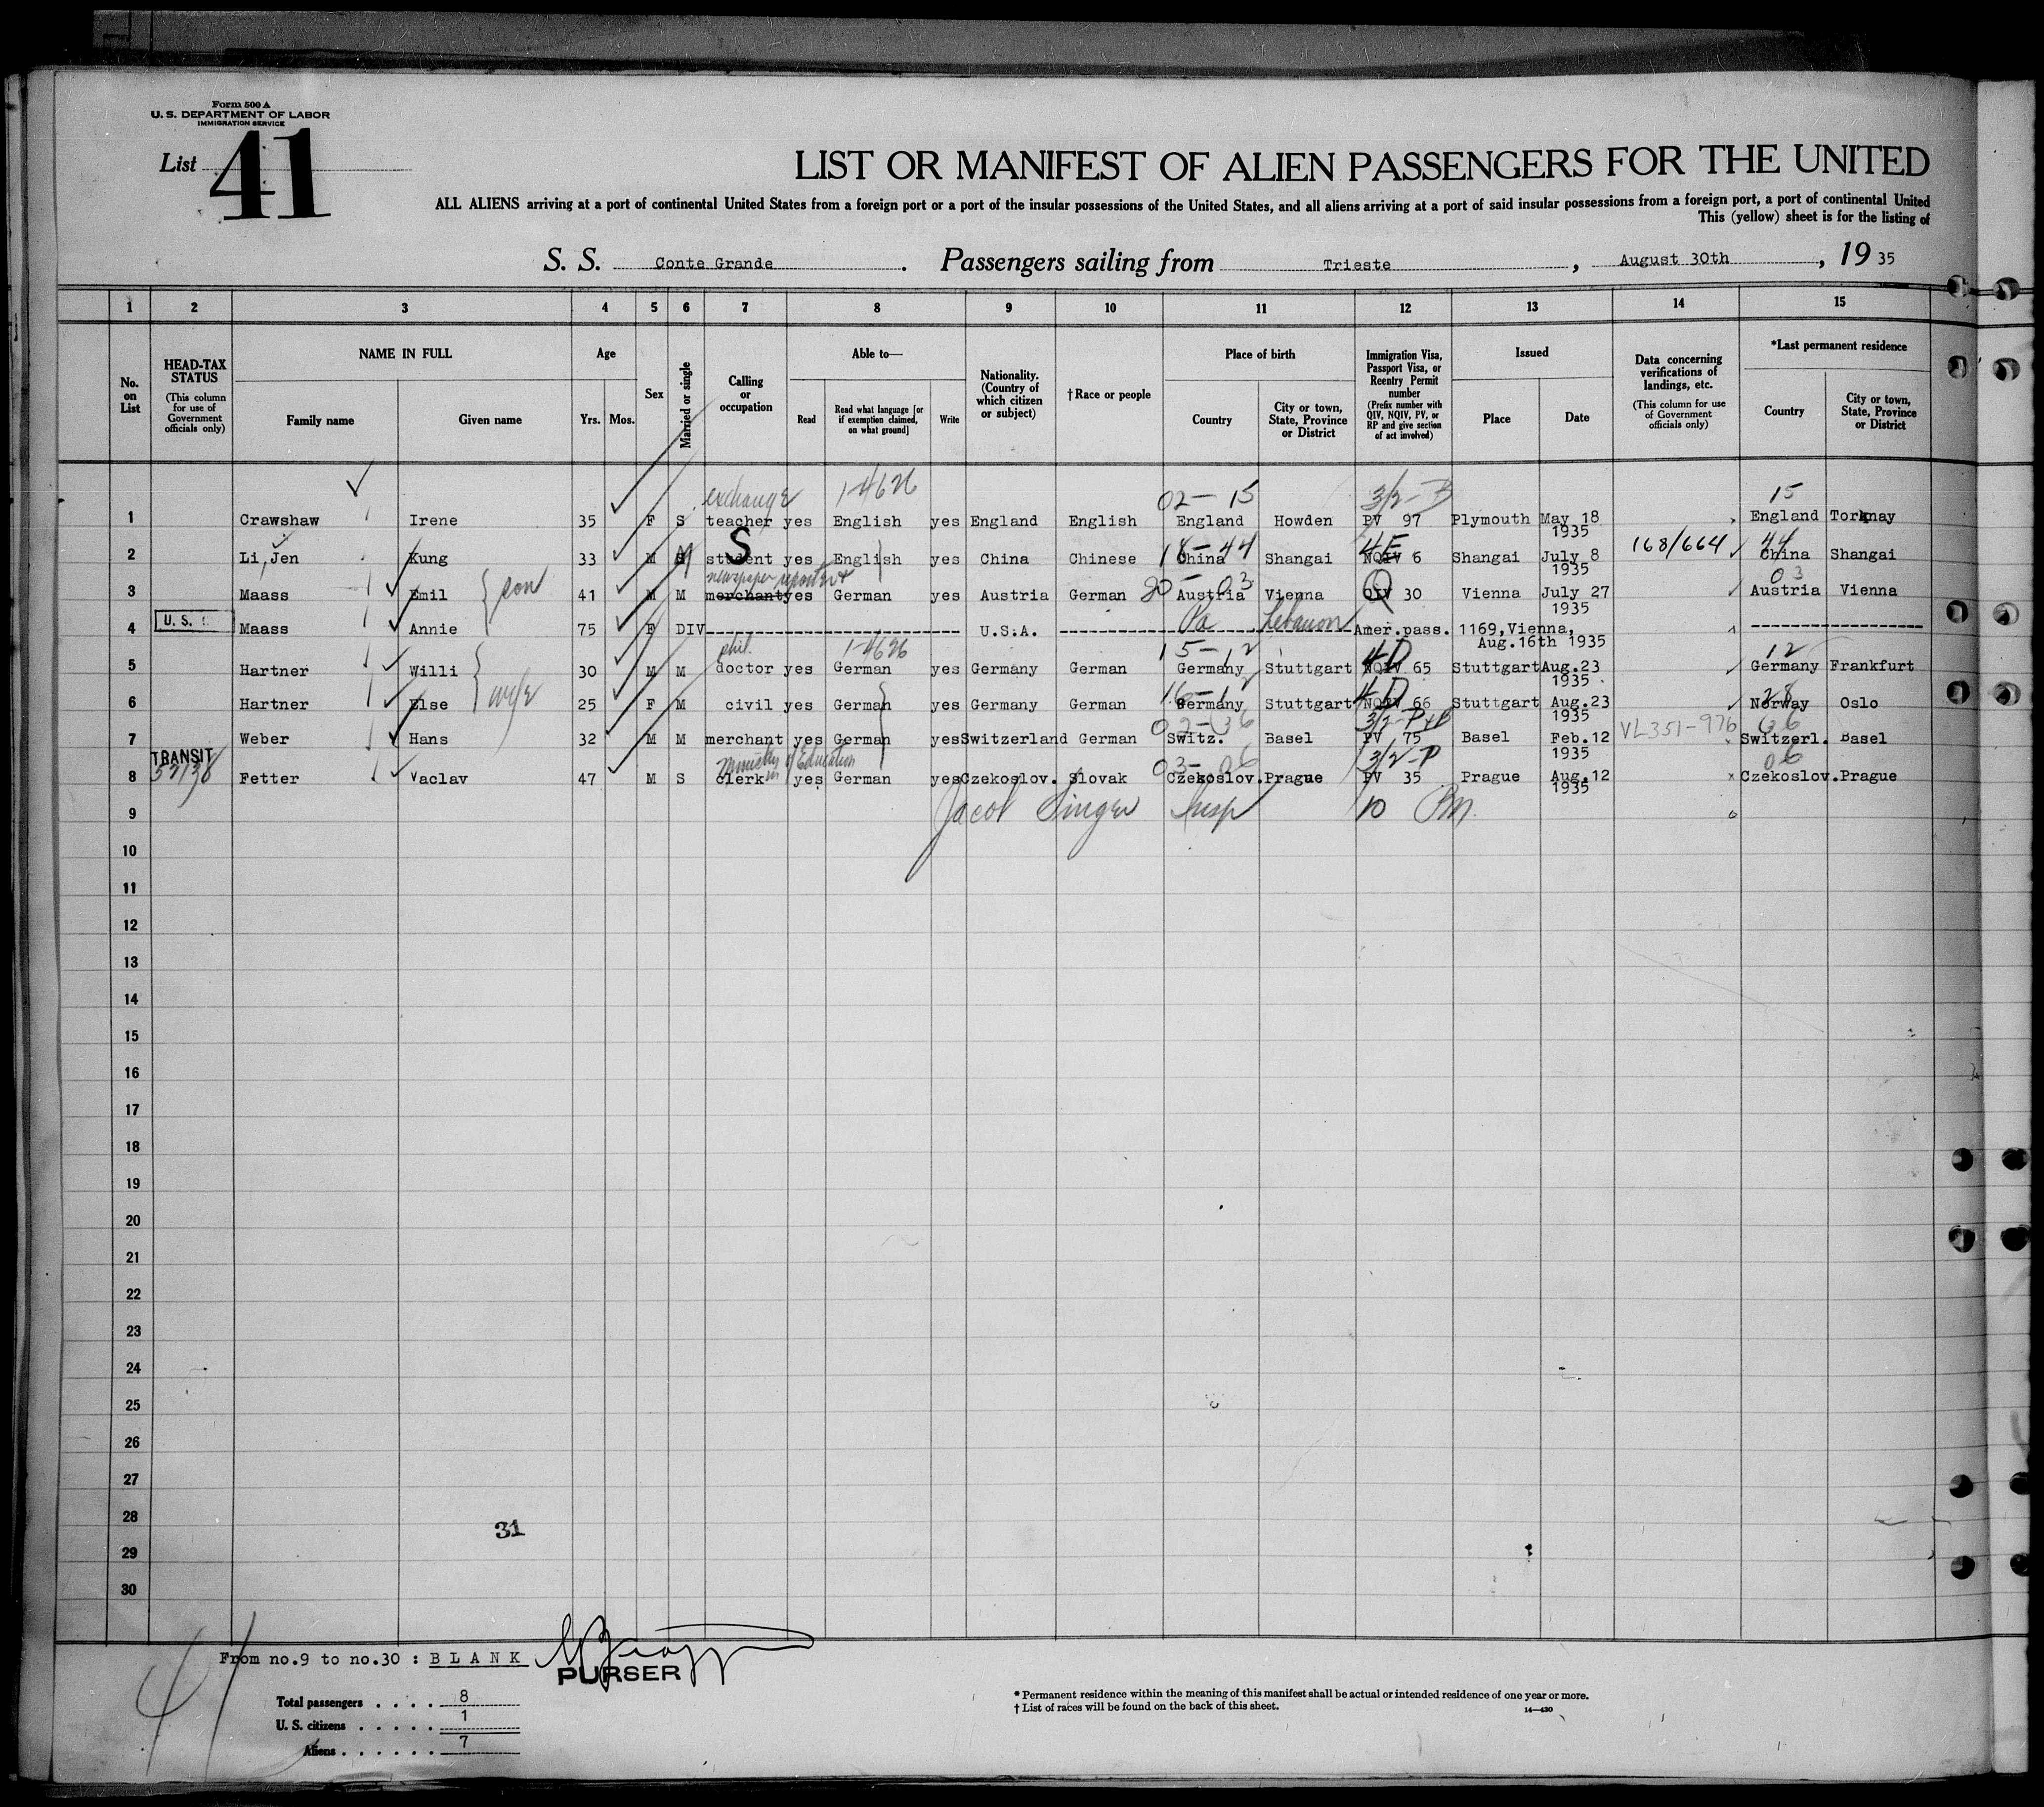 Form 500 A
U. S. DEPARTMENT OF LABOR
IMMIGRATION SERVICE
List 41
LIST OR MANIFEST OF ALIEN PASSENGERS FOR THE UNITED
ALL ALIENS arriving at a port of continental United States from a foreign port or a port of the insular possessions of the United States, and all aliens arriving at a port of said insular possessions from a foreign port, a port of continental United
This (yellow) sheet is for the listing of
S. S. Conte Grande . Passengers sailing from Trieste , August 30th , 19 35
1 2 3 4 5 6 7 8 9 10 11 12 13 14 15
No. on List
HEAD-TAX STATUS (This column for use of Government officials only)
NAME IN FULL Family name Given name
Age Yrs. Mos.
Sex
Married or single
Calling or occupation
Able to— Read Read what language [or if exemption claimed, on what ground] Write
Nationality. (Country of which citizen or subject)
† Race or people
Place of birth Country City or town, State, Province or District
Immigration Visa, Passport Visa, or Reentry Permit number (Prefix number with QIV, NQIV, PV, or RP and give section of act involved)
Issued Place Date
Data concerning verifications of landings, etc. (This column for use of Government officials only)
*Last permanent residence Country City or town, State, Province or District
exchange 1-4626 02-15 3/2-B 15
1 Crawshaw Irene 35 F S teacher yes English yes England English England Howden PV 97 Plymouth May 18 1935 England Torknay
S 18-44 4E 168/664 44
2 Li, Jen Kung 33 M M student yes English yes China Chinese China Shangai NQIV 6 Shangai July 8 1935 China Shangai
newspaper reporter 20-03 Q 03
3 Maass Emil son 41 M M merchant yes German yes Austria German Austria Vienna QIV 30 Vienna July 27 1935 Austria Vienna
4 U.S. Maass Annie 75 F DIV U.S.A. Pa Lebanon Amer.pass. 1169,Vienna, Aug.16th 1935
phil. 1-4626 15-12 4D 12
5 Hartner Willi 30 M M doctor yes German yes Germany German Germany Stuttgart NQIV 65 Stuttgart Aug.23 1935 Germany Frankfurt
wife 16-12 4D 28
6 Hartner Else 25 F M civil yes German yes Germany German Germany Stuttgart NQIV 66 Stuttgart Aug.23 1935 Norway Oslo
02-36 3/2-P+B VL351-976 36
7 Weber Hans 32 M M merchant yes German yes Switzerland German Switz. Basel PV 75 Basel Feb.12 1935 Switzerl. Basel
TRANSIT Ministry of Education 03-06 3/2-P 06
8 Fetter Vaclav 47 M S clerk in yes German yes Czekoslov. Slovak Czekoslov. Prague PV 35 Prague Aug.12 1935 Czekoslov. Prague
9 Jacob Singer Insp 10
10
11
12
13
14
15
16
17
18
19
20
21
22
23
24
25
26
27
28
31
29
30
From no.9 to no.30 : BLANK
PURSER
41
Total passengers . . . . 8
U. S. citizens . . . . . 1
Aliens . . . . . . 7
* Permanent residence within the meaning of this manifest shall be actual or intended residence of one year or more.
† List of races will be found on the back of this sheet.
14—430